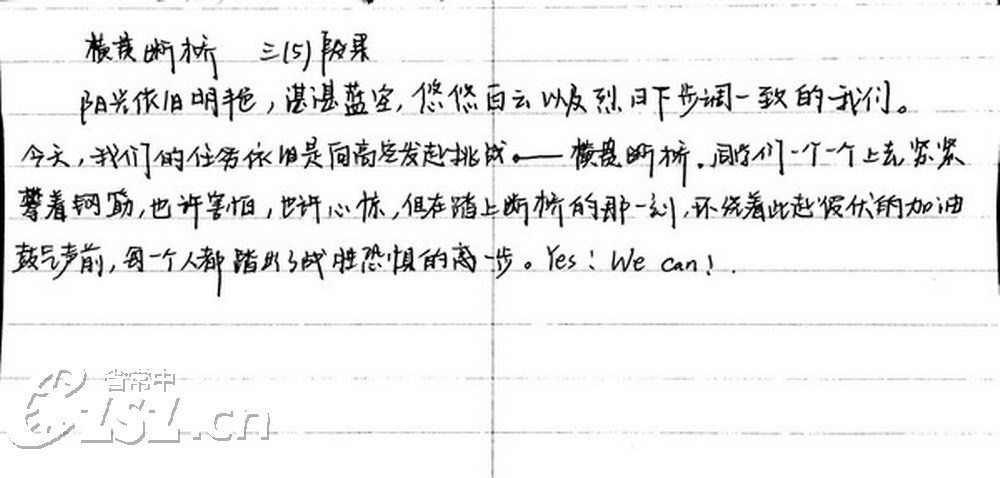 横越断桥 三(5) 段果
阳光依旧明艳，湛湛蓝空，悠悠白云以及烈日下步调一致的我们。
今天，我们的任务依旧是向高空发起挑战。——横越断桥。同学们一个一个上去紧紧
攀着钢筋，也许害怕，也许心惊，但在踏上断桥的那一刻，环绕着此起彼伏的加油
鼓气声前，每一个人都踏出了战胜恐惧的高一步。Yes！We can！.
省常中
CZSZ.cn